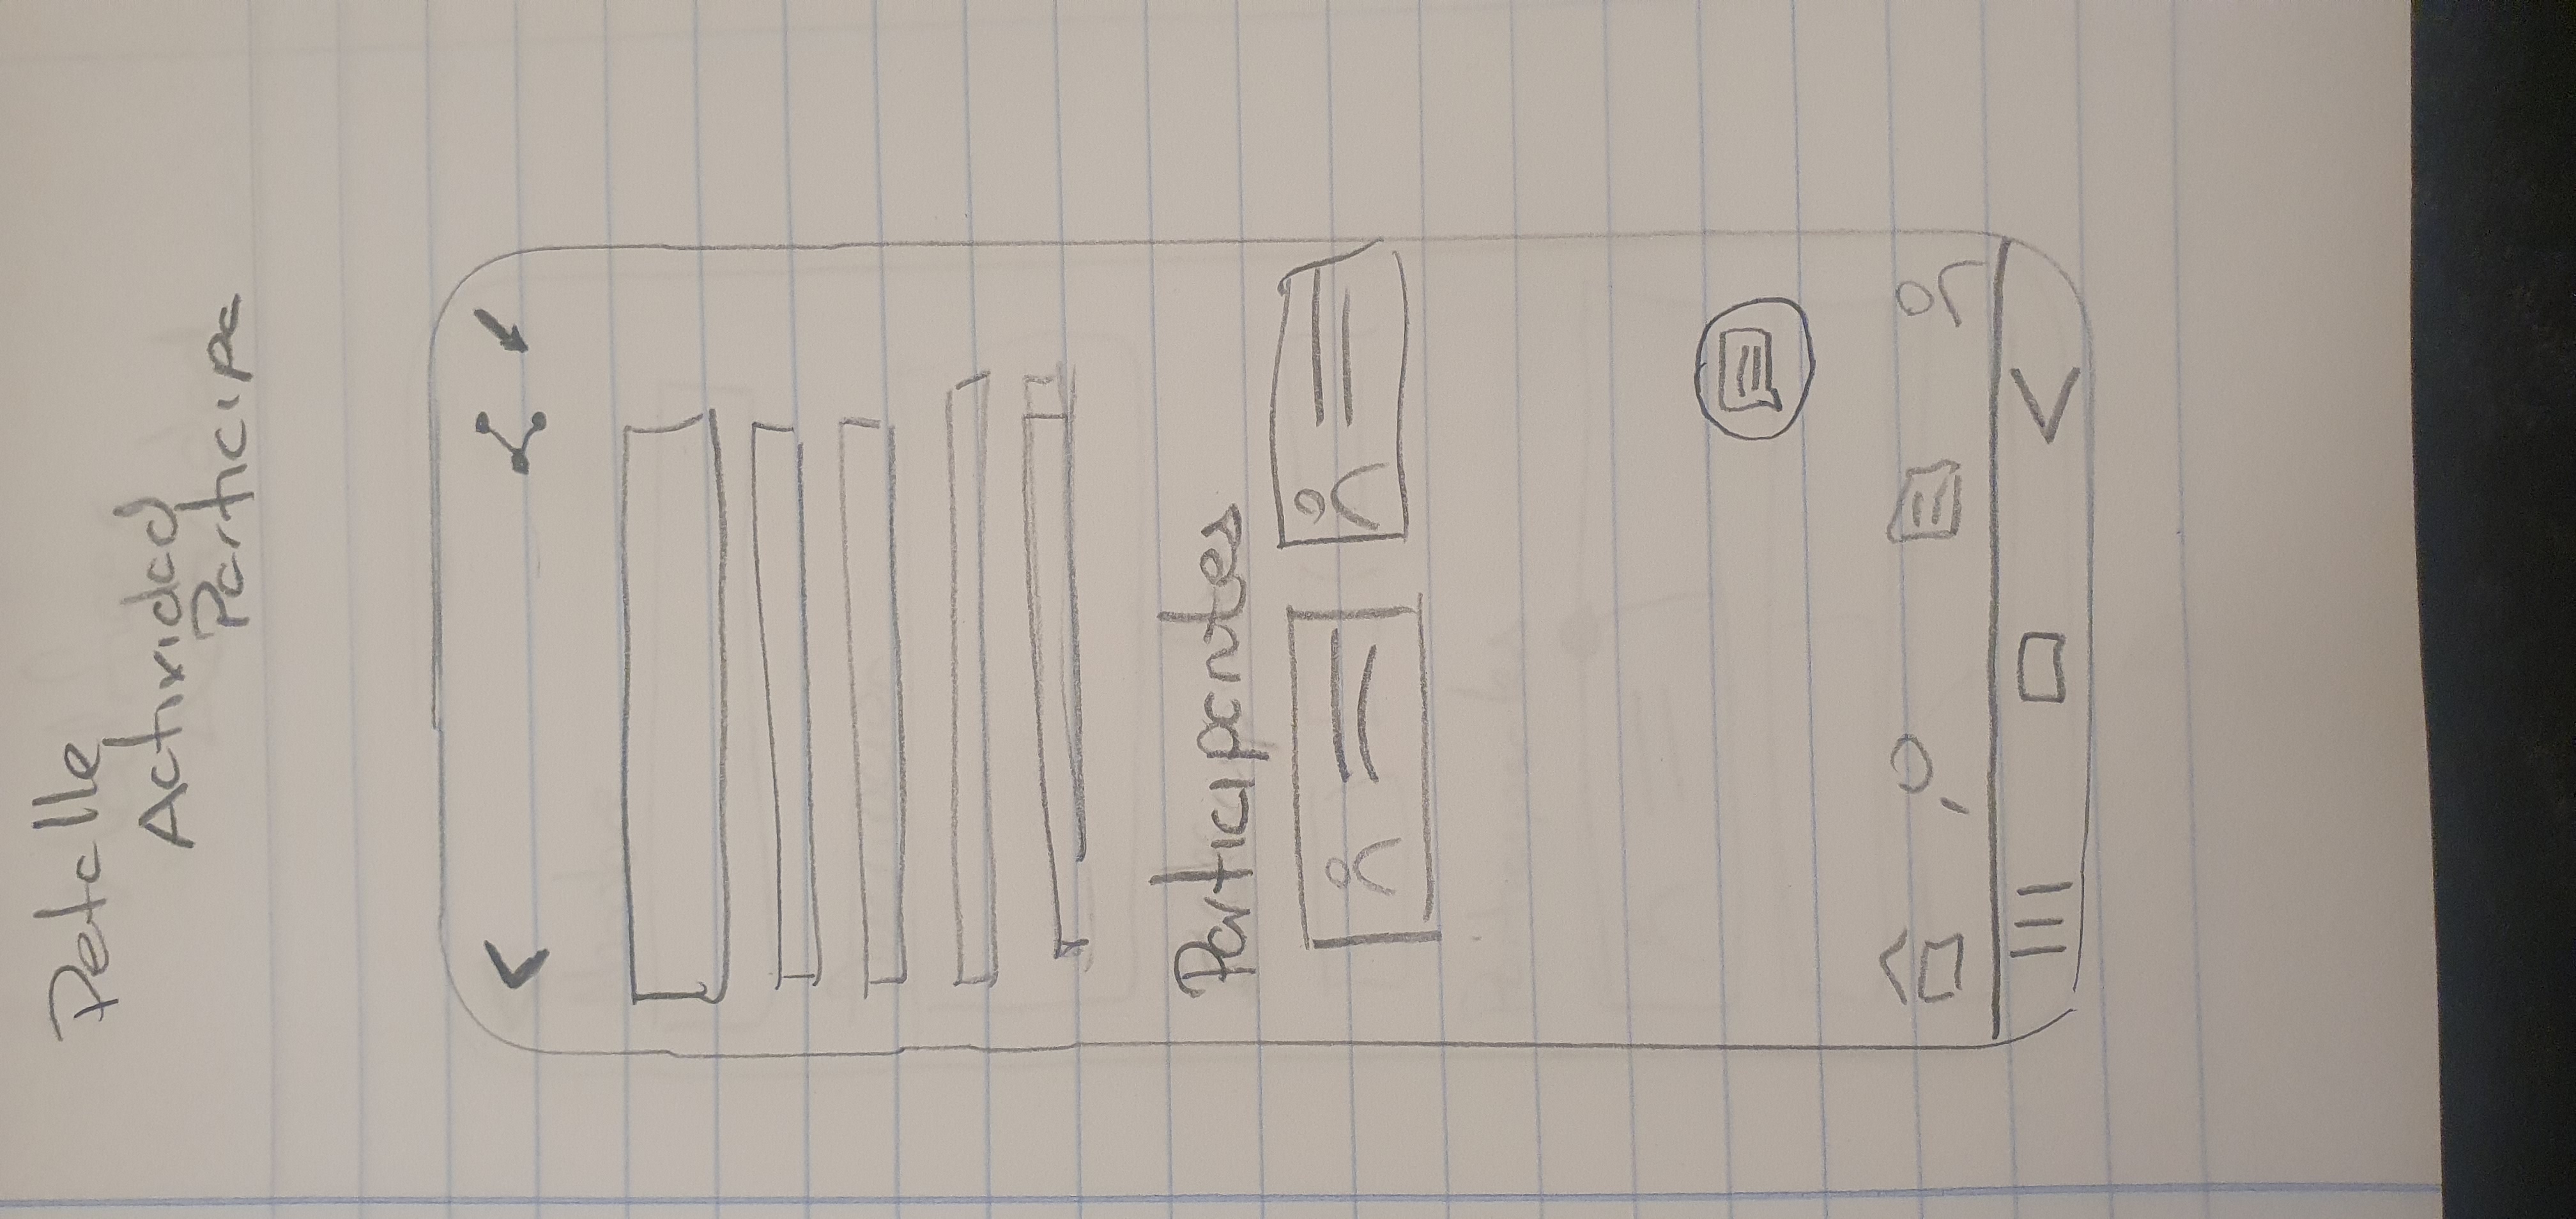 Detalle
Actividad
Participa
Participantes